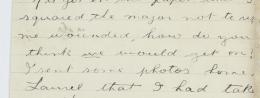 squared the major not to su
me wounded, how do you
think we would get on!
I sent some photos home
Laurel that I had take